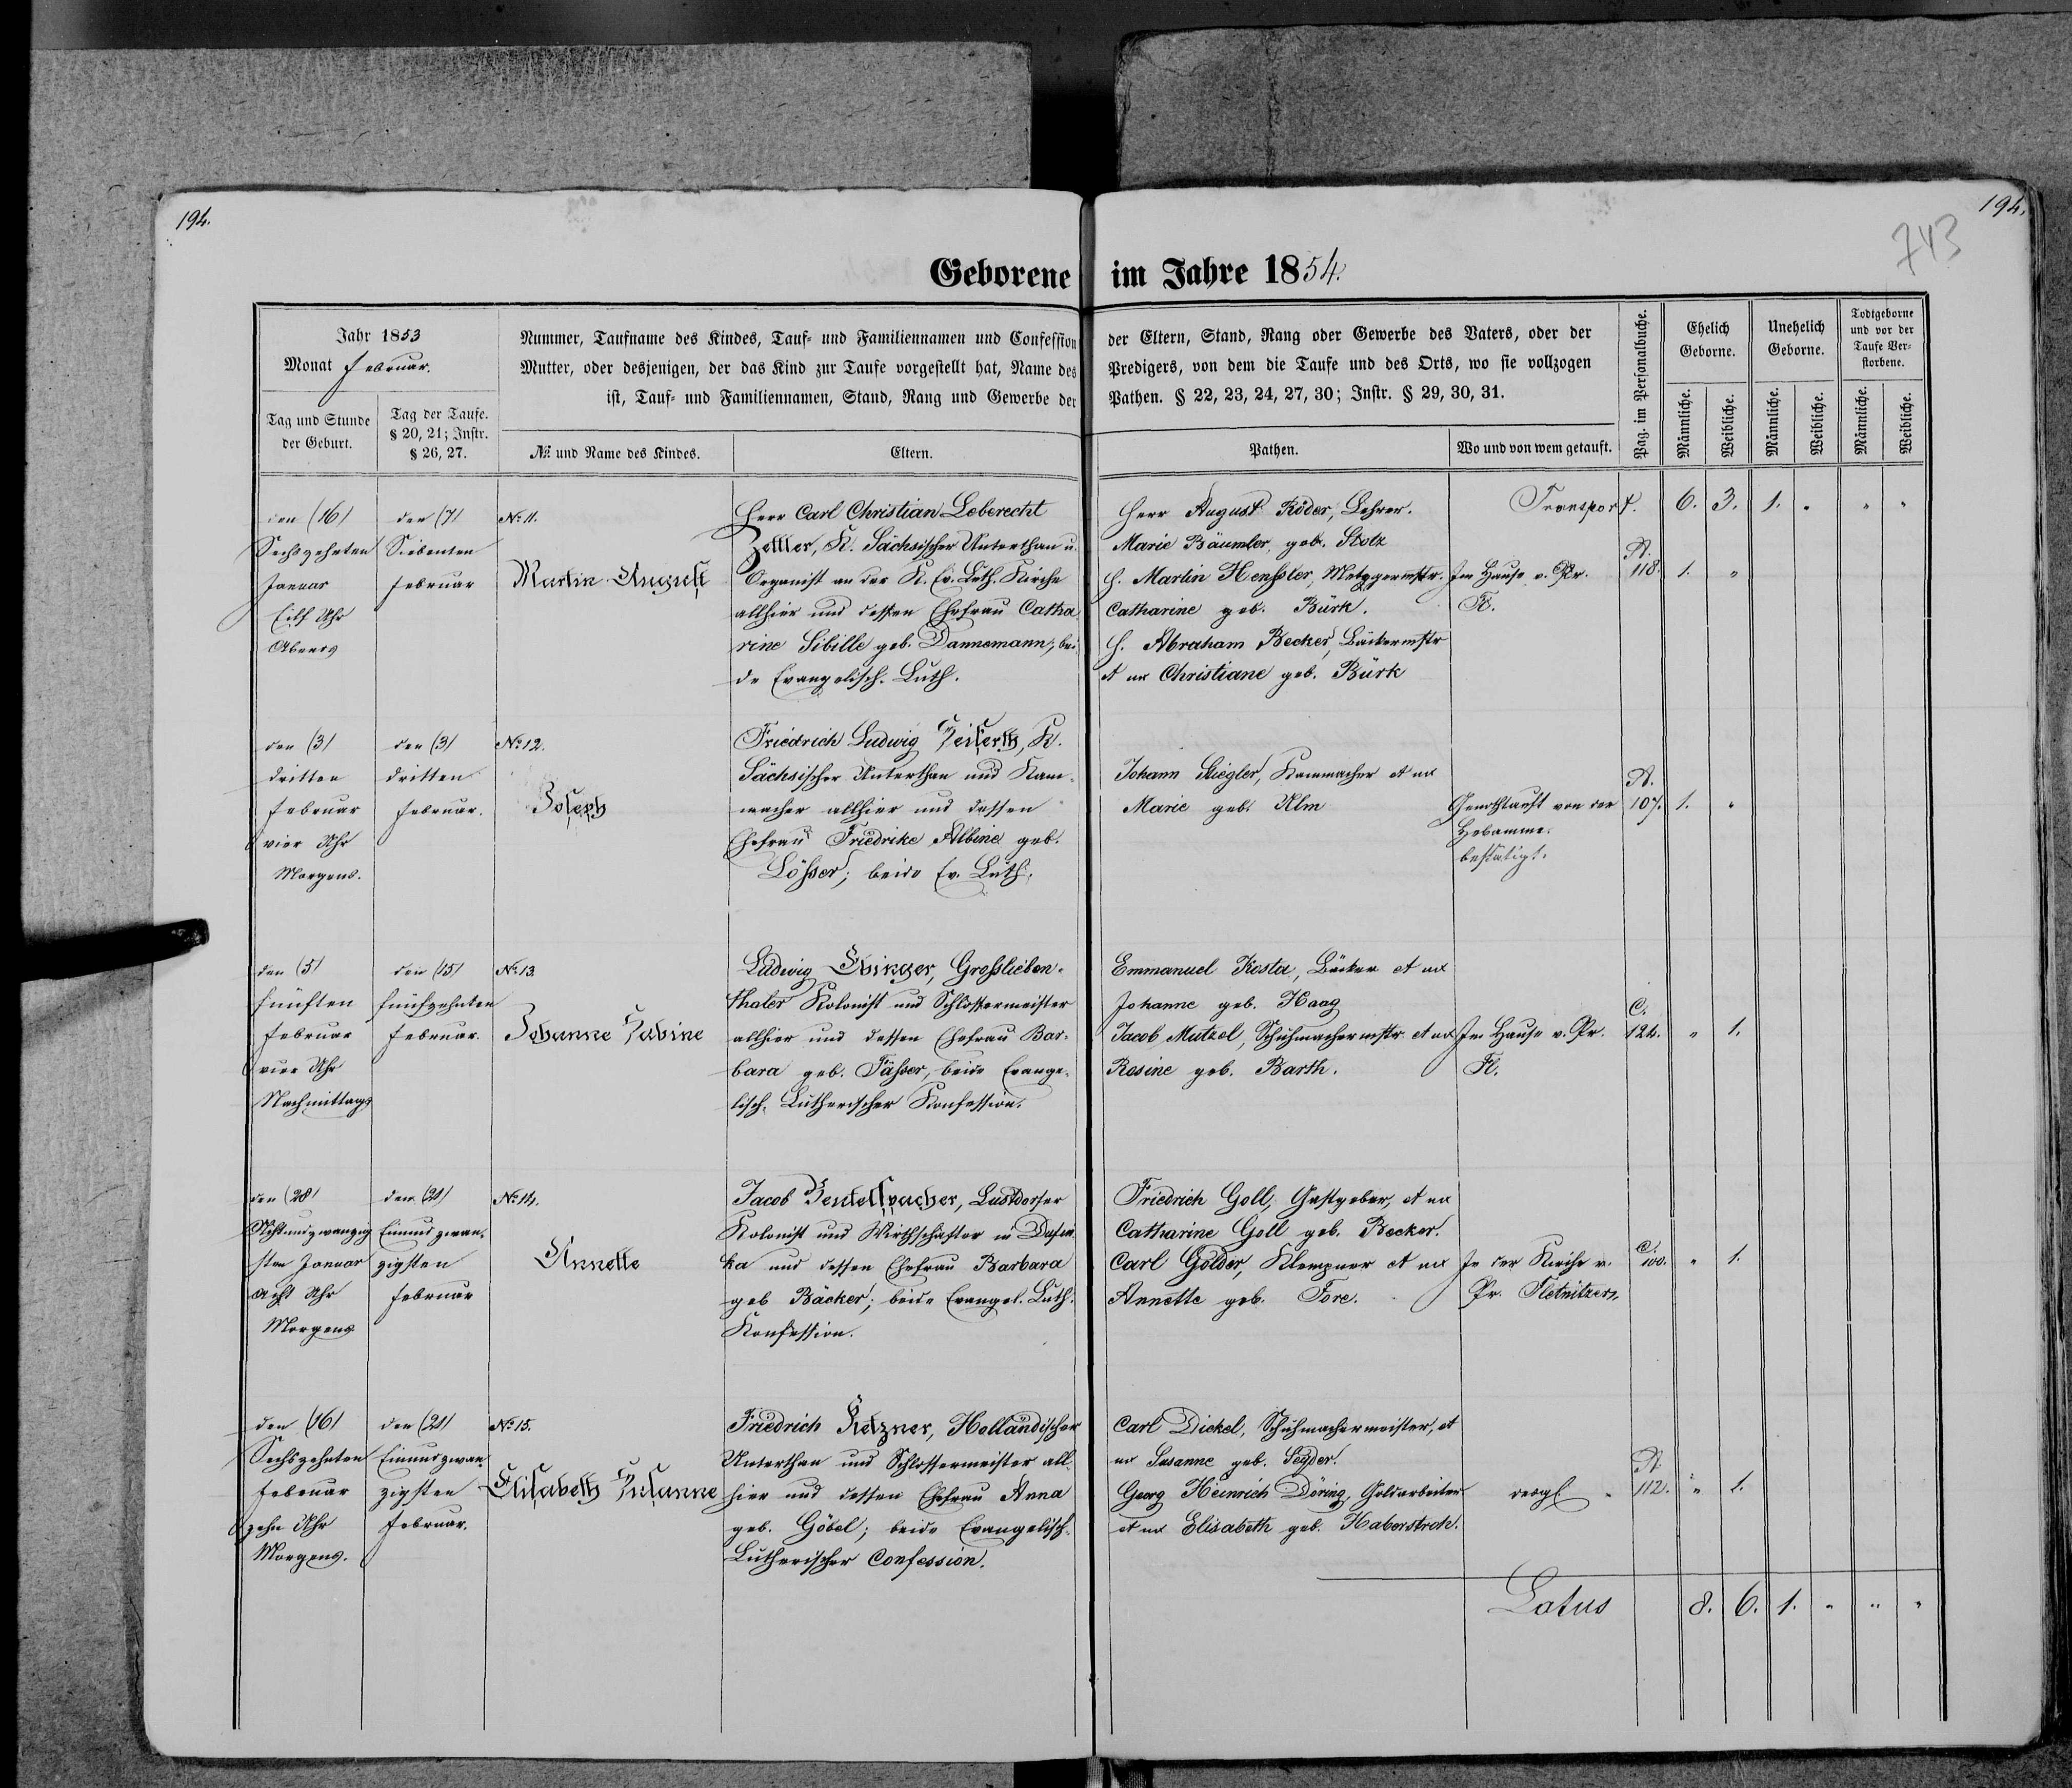 194.
194.
743
Geborene im Jahre 1854.
Jahr 1853
Monat Februar.
Tag und Stunde
der Geburt.
Tag der Taufe.
§ 20, 21; Instr.
§ 26, 27.
Nummer, Taufname des Kindes, Tauf- und Familiennamen und Confession der Eltern, Stand, Rang oder Gewerbe des Vaters, oder der
Mutter, oder desjenigen, der das Kind zur Taufe vorgestellt hat, Name des Predigers, von dem die Taufe und des Orts, wo sie vollzogen
ist, Tauf- und Familiennamen, Stand, Rang und Gewerbe der Pathen. § 22, 23, 24, 27, 30; Instr. § 29, 30, 31.
№ und Name des Kindes.
Eltern.
Pathen.
Wo und von wem getauft.
Pag. im Personalbuche.
Ehelich
Geborne.
Unehelich
Geborne.
Todtgeborne
und vor der
Taufe Ver-
storbene.
Männliche.
Weibliche.
Männliche.
Weibliche.
Männliche.
Weibliche.
Transport. 6. 3. 1. " " "
den (16)
Sechszehnten
Januar
Eilf Uhr
Abends
den (7)
Siebenten
Februar
No 11.
Martin August
Herr Carl Christian Leberecht
Zettler, K. Sächsischer Unterthan u.
Organist an der K. Ev. Luth. Kirche
allhier und dessen Ehefrau Catha
rine Sibille geb. Dannemann; bei-
de Evangelisch. Luth.
Herr August Röder, Lehrer.
Marie Bäumler, geb. Stotz
H. Martin Henssler, Metzgermstr.
Catharine geb. Bürk.
H. Abraham Becker, Bäckermstr
et ux Christiane geb. Bürk
Im Hause v. Pr.
Fl.
A.
118. 1. "
den (3)
dritten
Februar
vier Uhr
Morgens.
den (3)
dritten
Februar.
No 12.
Joseph
Friedrich Ludwig Seiferth, K.
Sächsischer Unterthan und Kam-
macher allhier und dessen
Ehefrau Friedrike Albine geb.
Lösser; beide Ev. Luth.
Johann Stiegler, Kammacher et ux
Marie geb. Ulm
Genothtauft von der
Hebamme.
bestätigt.
A.
107. 1. "
den (5)
fünften
Februar
vier Uhr
Nachmittags
den (15)
fünfzehnten
Februar.
No 13.
Johanne Sabine
Ludwig Ehinger, Grosslieben-
thaler Kolonist und Schlossermeister
allhier und dessen Ehefrau Bar-
bara geb. Fässer, beide Evange-
lisch. Lutherischer Konfession.
Emmanuel Kosta, Bäcker et ux
Johanne geb. Haag
Jacob Mutzel, Schuhmachermstr. et ux
Rosine geb. Barth.
Im Hause v. Pr.
Fl.
C.
124. " 1.
den (28)
Achtundzwanzig
sten Januar
Acht Uhr
Morgens
den (21)
Einundzwan-
zigsten
Februar
No 14.
Annette
Jacob Beutelspacher, Lustdorfer
Kolonist und Wirthschafter in
ka und dessen Ehefrau Barbara
geb Bäcker; beide Evangel. Luth.
Konfession.
Friedrich Goll, Gastgeber, et ux
Catharine Goll geb. Becker.
Carl Golder, Klempner et ux
Annette geb. Fore.
In der Kirche v.
Pr. Fletnitzer.
C.
100. " 1.
den (16)
Sechszehnten
Februar
zehn Uhr
Morgens.
den (21)
Einundzwan-
zigsten
Februar.
No 15.
Elisabeth Susanne
Friedrich Ketzner, Holländischer
Unterthan und Schlossermeister all-
hier und dessen Ehefrau Anna
geb. Göbel; beide Evangelisch-
Lutherischer Confession.
Carl Dickel, Schuhmachermeister, et
ux Susanne geb. Seyder.
Georg Heinrich Döring, Goldarbeiter
et ux Elisabeth geb. Haberstroh.
desgl "
A.
112. " 1.
Latus 8. 6. 1. " " "